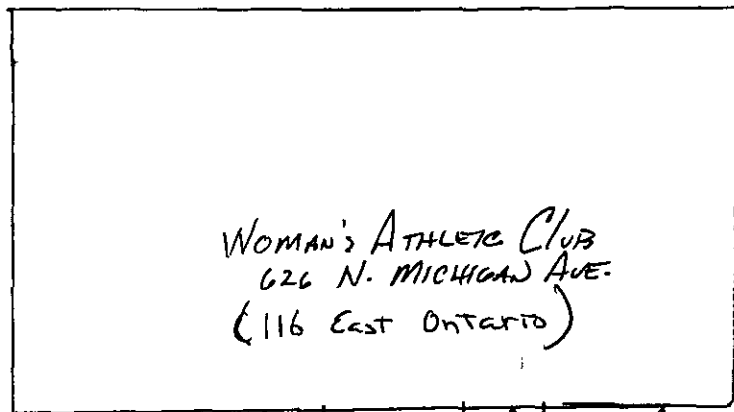 Woman's Athletic Club
626 N. Michigan Ave.
(116 East Ontario)